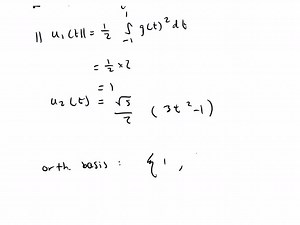 || u₁(t)|| = 1/2 ∫₋₁¹ g(t)² dt
= 1/2 × 2
= 1
u₂(t) = √5/2 (3t² - 1)
orth basis : { 1 ,